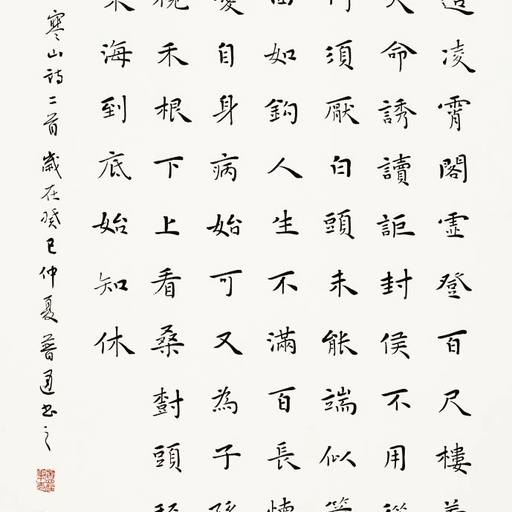 造凌霄閣虛登百尺樓養
夭命誘讀詎封侯不用從
何須厭白頭未能端似箭
曲如鈎人生不滿百長懷
憂自身病始可又為子孫
視禾根下上看桑樹頭秤
東海到底始知休
寒山詩二首 歲在癸巳仲夏 普書之